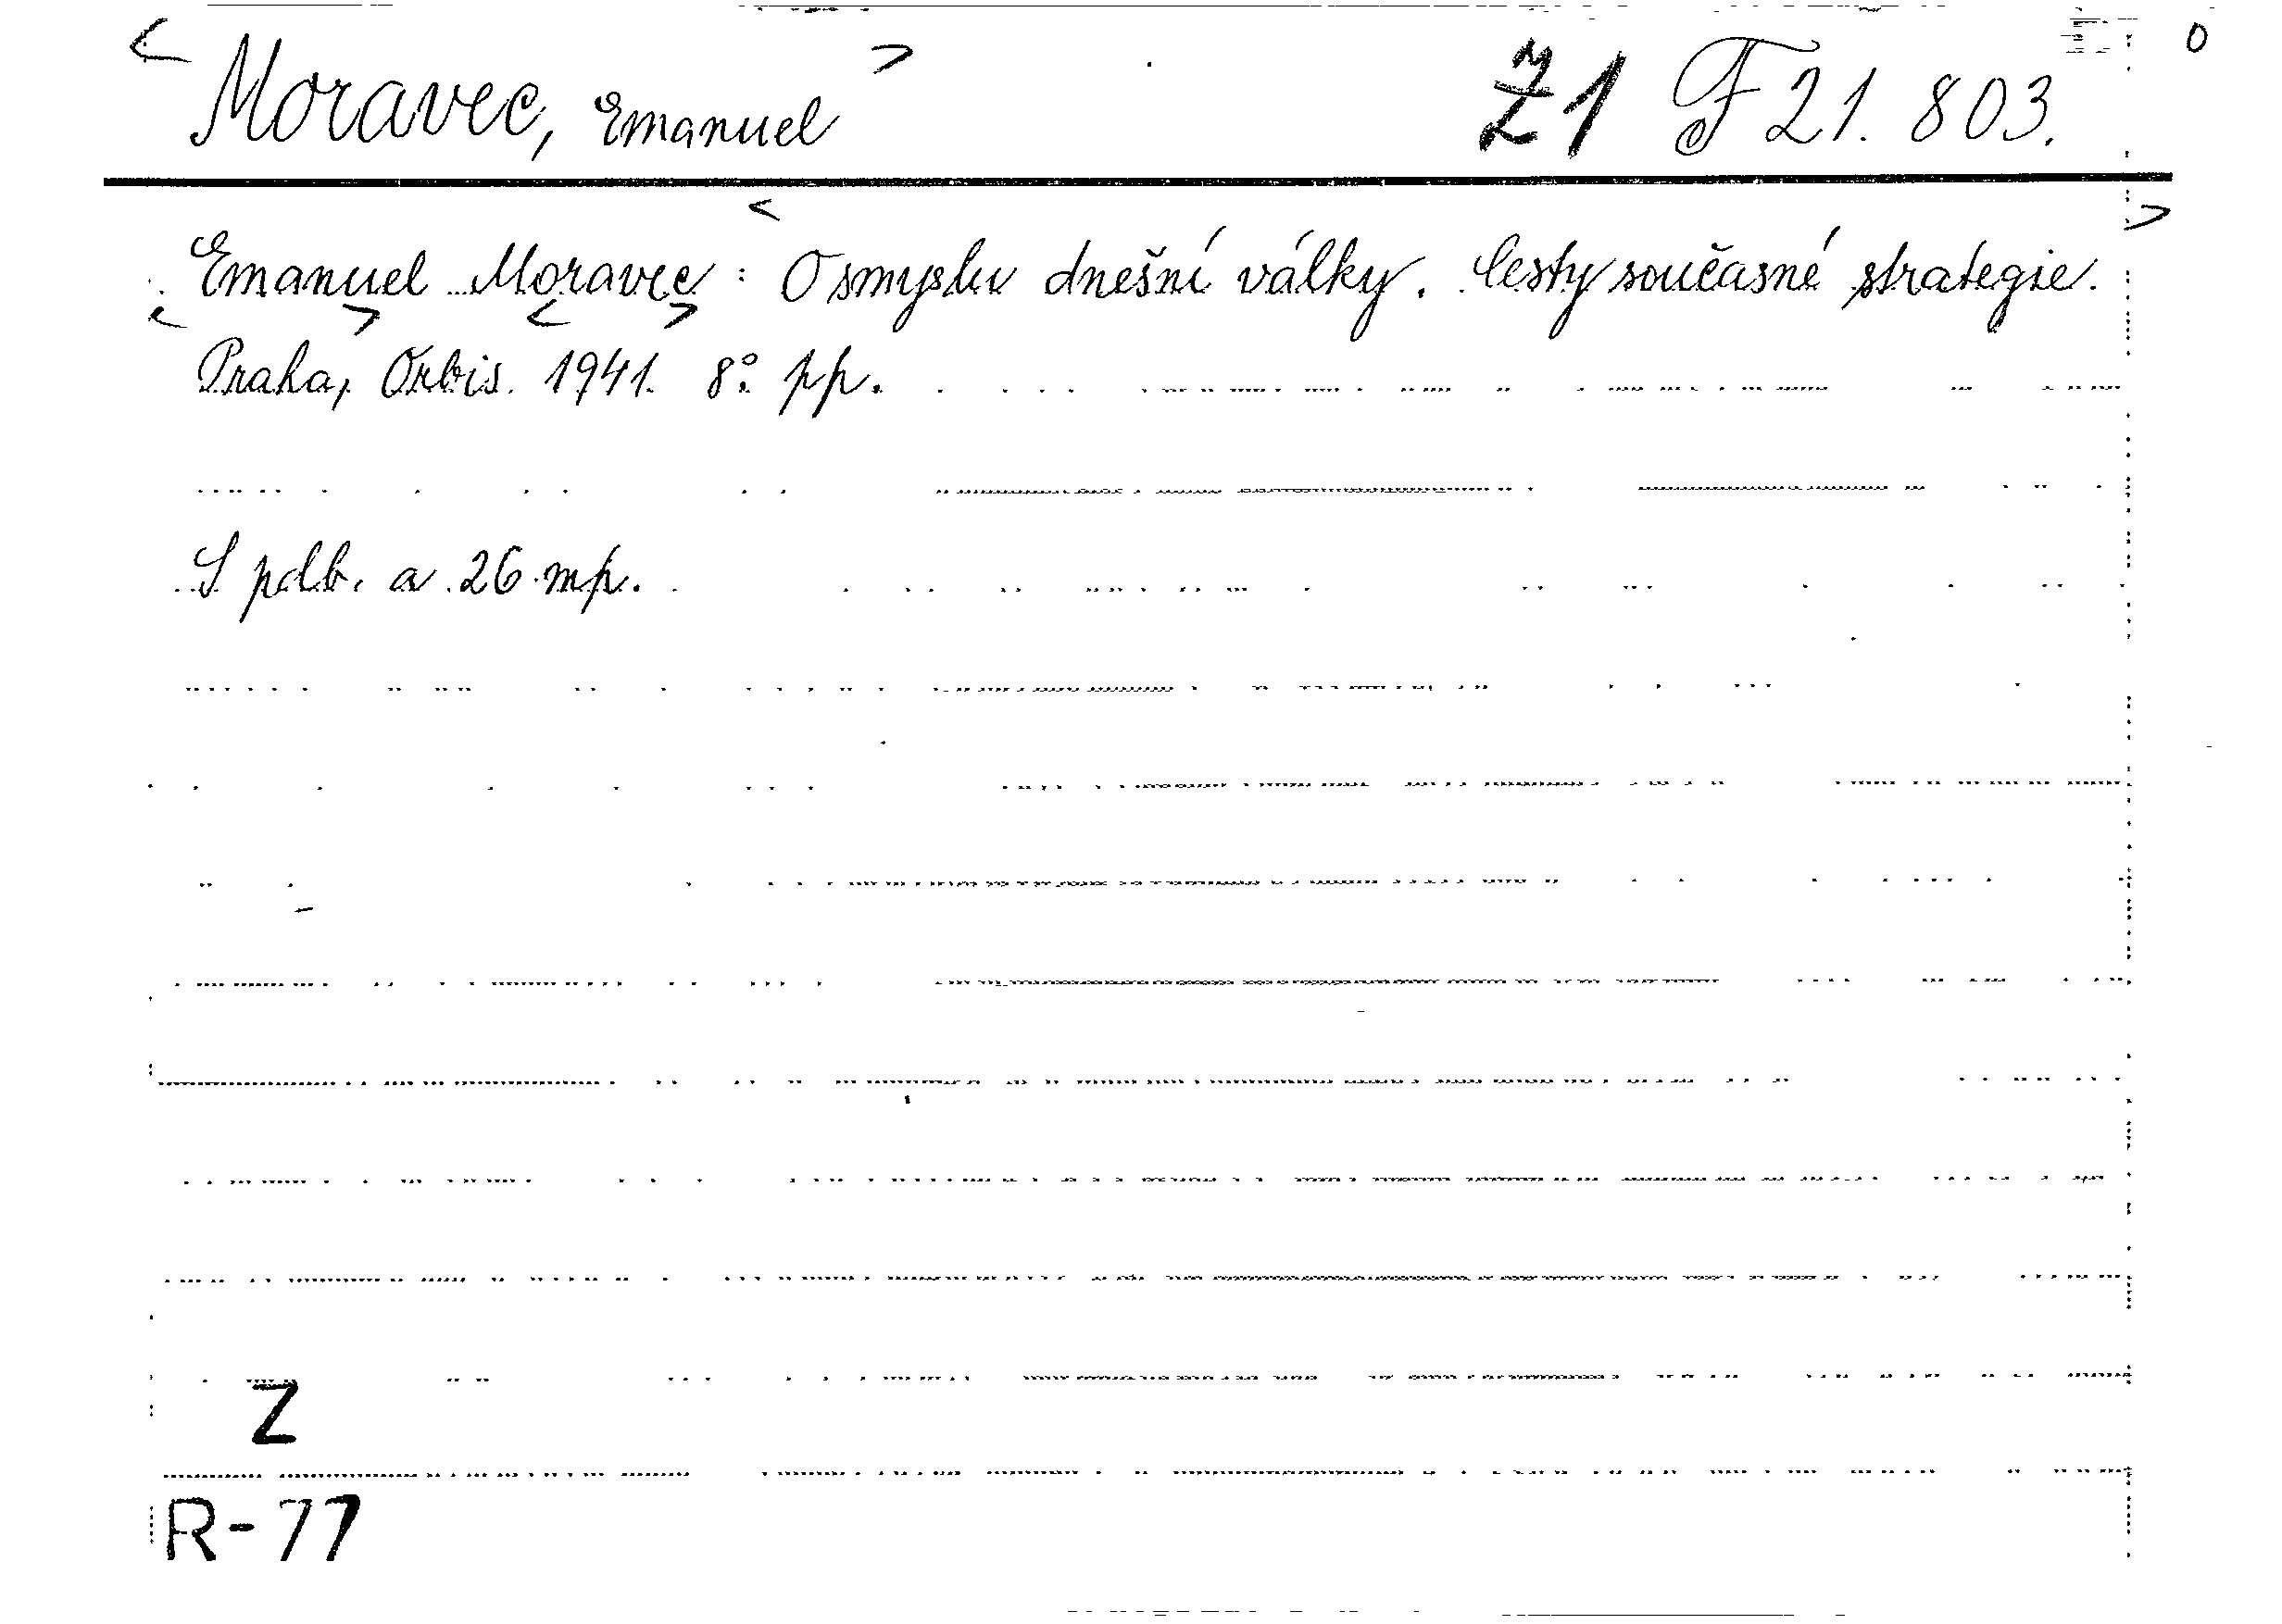 < Moravec, Emanuel > Ž1 F 21. 803. 0
Emanuel Moravec : < O smyslu dnešní války. Cesty současné strategie. >
< > < >
Praha, Orbis. 1941. 8°. pp.
S pdb. a 26 mp.
Z
R-77